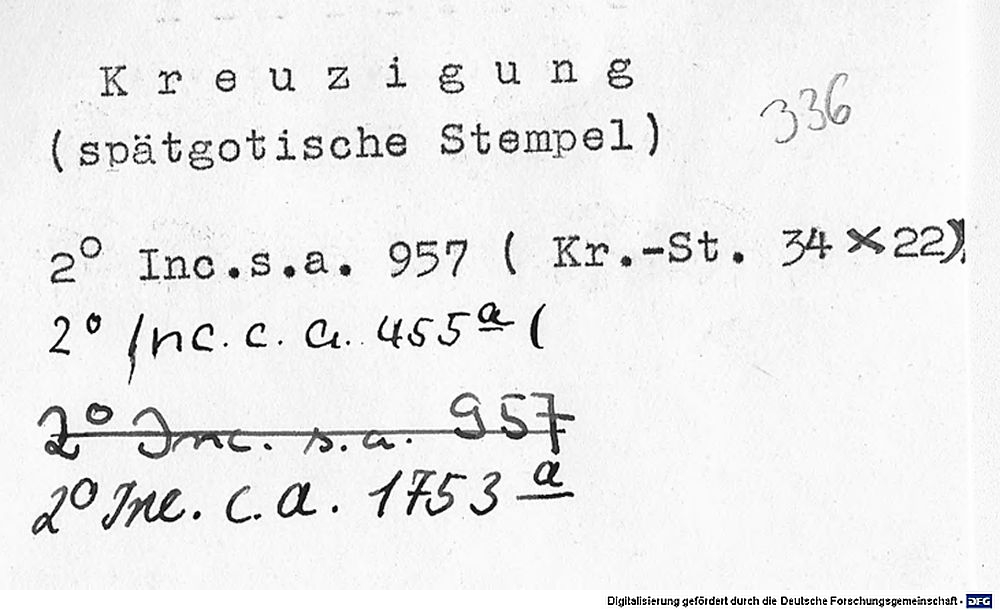 K r e u z i g u n g
(spätgotische Stempel)
336
2° Inc.s.a. 957 ( Kr.-St. 34×22)
2° Inc. c. a. 455ª (
2° Inc. s.a. 957
2° Inc. c.a. 1753 ª
Digitalisierung gefördert durch die Deutsche Forschungsgemeinschaft - DFG